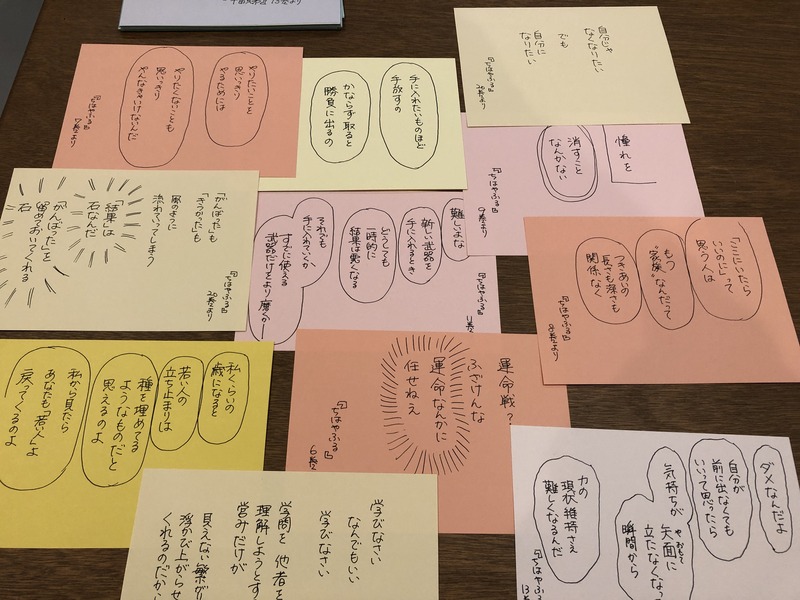 千歳火野辺 13巻より
自分じゃ
なくなりたい
でも
自分に
なりたい
『ちはやふる』
20巻より
やりたいことを
思いっきり
やるためには
やりたくないことも
思いっきり
やんなきゃいけないんだ
『ちはやふる』
7巻より
手に入れたいものほど
手放すの
かならず取ると
勝負に出るの
憧れを
消すこと
なんかない
『ちはやふる』
9巻より
「がんばった」も
「きつかった」も
風のように
流れていってしまう
「結果」は
石なんだ
「がんばった」を
留めておいてくれる
石
『ちはやふる』
20巻より
難しいよな
新しい武器を
手に入れるとき
どうしても
一時的に
結果は悪くなる
それでも
手に入れていくか
すでに使える
武器だけをより磨くか―
『ちはやふる』
11巻より
「ここにいたら
いいのに」って
思う人は
もう
“家族”なんだって
つきあいの
長さも深さも
関係なく
『ちはやふる』
8巻より
私くらいの
歳になると
若い人の
立ち止まりは
種を埋めてる
ようなものだと
思えるのよ
私から見たら
あなたも「若い人」よ
戻ってくるのよ
運命戦？
ふざけんな
運命なんかに
任せねえ
『ちはやふる』
6巻
ダメなんだよ
自分が
前に出なくても
いいって思ったら
気持ちが
矢面に
やおもて
立たなくなっ
瞬間から
力の
現状維持さえ
難しくなるんだ
『ちはやふる』
13巻
学びなさい
なんでもいい
学びなさい
学問を他者を
理解しようとす
営みだけが
見えない繋がり
浮かび上がらせ
くれるのだから